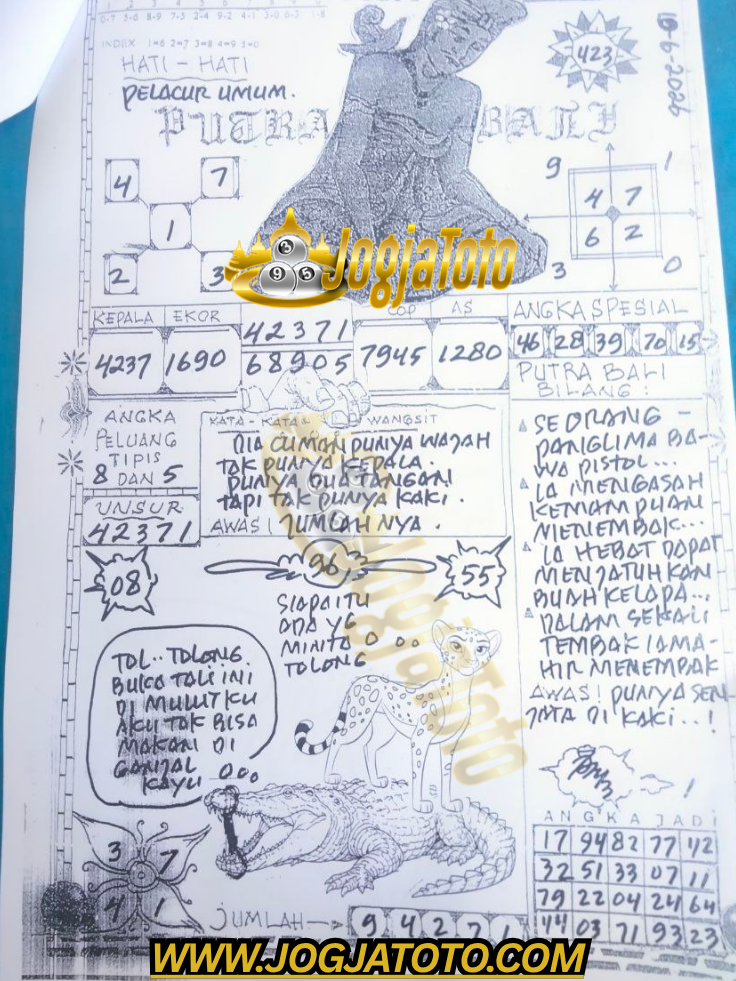 0-7 5-6 8-9 7-5 2-4 9-2 4-1 3-0 6-3 1-8
INDEX 1=6 2=7 3=8 4=9 5=0
HATI - HATI
PELACUR UMUM.
PUTRA BALI
423
10-6-2026
4 7
1
2 3
9 1
4 7
6 2
3 0
JogjaToto
KEPALA EKOR COP AS
4237 1690
42371
68905
7945 1280
ANGKA SPESIAL
46 28 39 70 15
PUTRA BALI
BILANG :
ANGKA
PELUANG
TIPIS
8 DAN 5
UNSUR
42371
KATA - KATA WANGSIT
DIA CUMAN PUNYA WAJAH
TAK PUNYA KEPALA.
PUNYA DUA TANGAN
TAPI TAK PUNYA KAKI.
AWAS! JUMLAH NYA.
SEORANG -
PANGLIMA BA-
WA PISTOL...
IA MENGASAH
KEMAMPUAN
MENEMBAK...
IA HEBAT DAPAT
MENJATUHKAN
BUAH KELAPA...
DALAM SEKALI
TEMBAK IAMA-
HIR MENEMBAK
AWAS! PUNYA SEN
JATA DI KAKI..!
08
96
55
SIAPA ITU
ADA YG
MINTA
TOLONG
TOL.. TOLONG.
BUKA TALI INI
DI MULUTKU
AKU TAK BISA
MAKAN DI
GANJAL
KAYU
JogjaToto
3 7
4 1
JUMLAH
9 4 2 7 1
ANGKA JADI
17 94 82 77 42
32 51 33 07 11
79 22 04 24 64
44 03 71 93 23
WWW.JOGJATOTO.COM